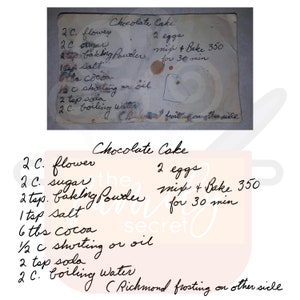 Chocolate Cake
2 C. flower
2 C. sugar
2 tsp. baking Powder
1 tsp salt
6 tbs cocoa
1/2 c shorting or oil
2 tsp soda
2 C. boiling water
2 eggs
mix & Bake 350
for 30 min
Chocolate Cake
2 C. flower
2 C. sugar
2 tsp. baking Powder
1 tsp salt
6 tbs cocoa
1/2 c shorting or oil
2 tsp soda
2 C. boiling water
2 eggs
mix & Bake 350
for 30 min
( Richmond frosting on other side
the
secret